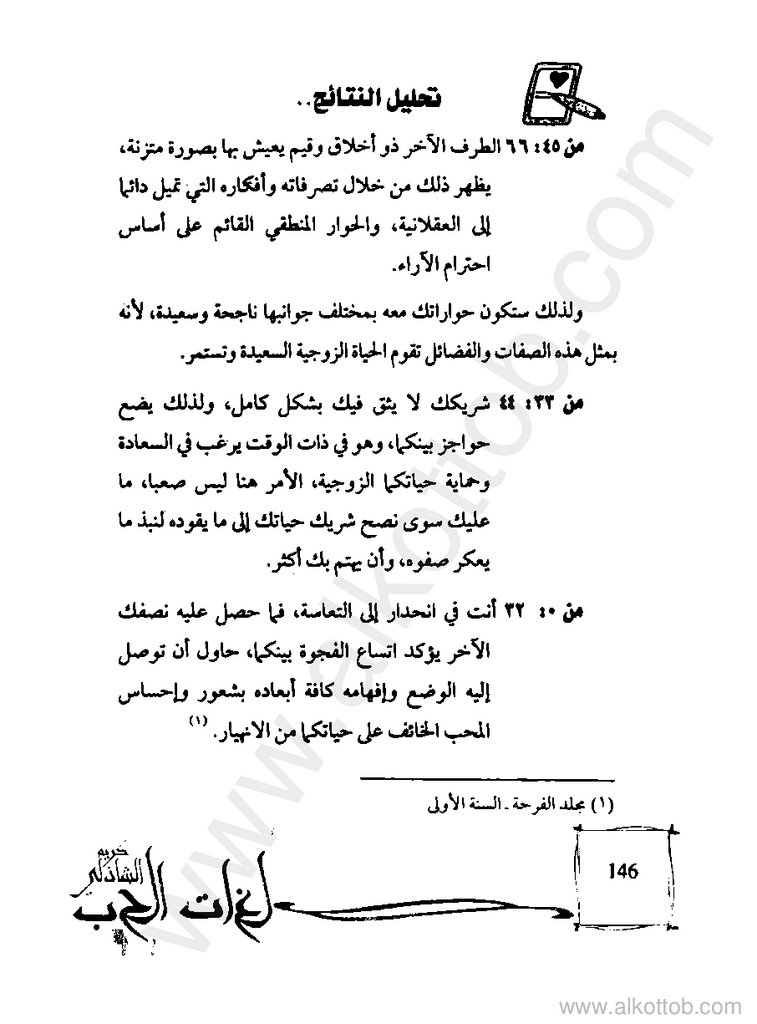 تحليل النتائج..
من ٤٥: ٦٦ الطرف الآخر ذو أخلاق وقيم يعيش بها بصورة متزنة،
يظهر ذلك من خلال تصرفاته وأفكاره التي تميل دائما
إلى العقلانية، والحوار المنطقي القائم على أساس
احترام الآراء.
ولذلك ستكون حواراتك معه بمختلف جوانبها ناجحة وسعيدة، لأنه
بمثل هذه الصفات والفضائل تقوم الحياة الزوجية السعيدة وتستمر.
من ٣٣: ٤٤ شريكك لا يثق فيك بشكل كامل، ولذلك يضع
حواجز بينكما، وهو في ذات الوقت يرغب في السعادة
وحماية حياتكما الزوجية، الأمر هنا ليس صعبا، ما
عليك سوى نصح شريك حياتك إلى ما يقوده لنبذ ما
يعكر صفوه، وأن يهتم بك أكثر.
من ٠: ٣٢ أنت في انحدار إلى التعاسة، فما حصل عليه نصفك
الآخر يؤكد اتساع الفجوة بينكما، حاول أن توصل
إليه الوضع وإفهامه كافة أبعاده بشعور وإحساس
المحب الخائف على حياتكما من الانهيار. (١)
(١) مجلد الفرحة - السنة الأولى
146
كريم
الشاذلي
لغات الحب
www.alkottob.com
www.alkottob.com